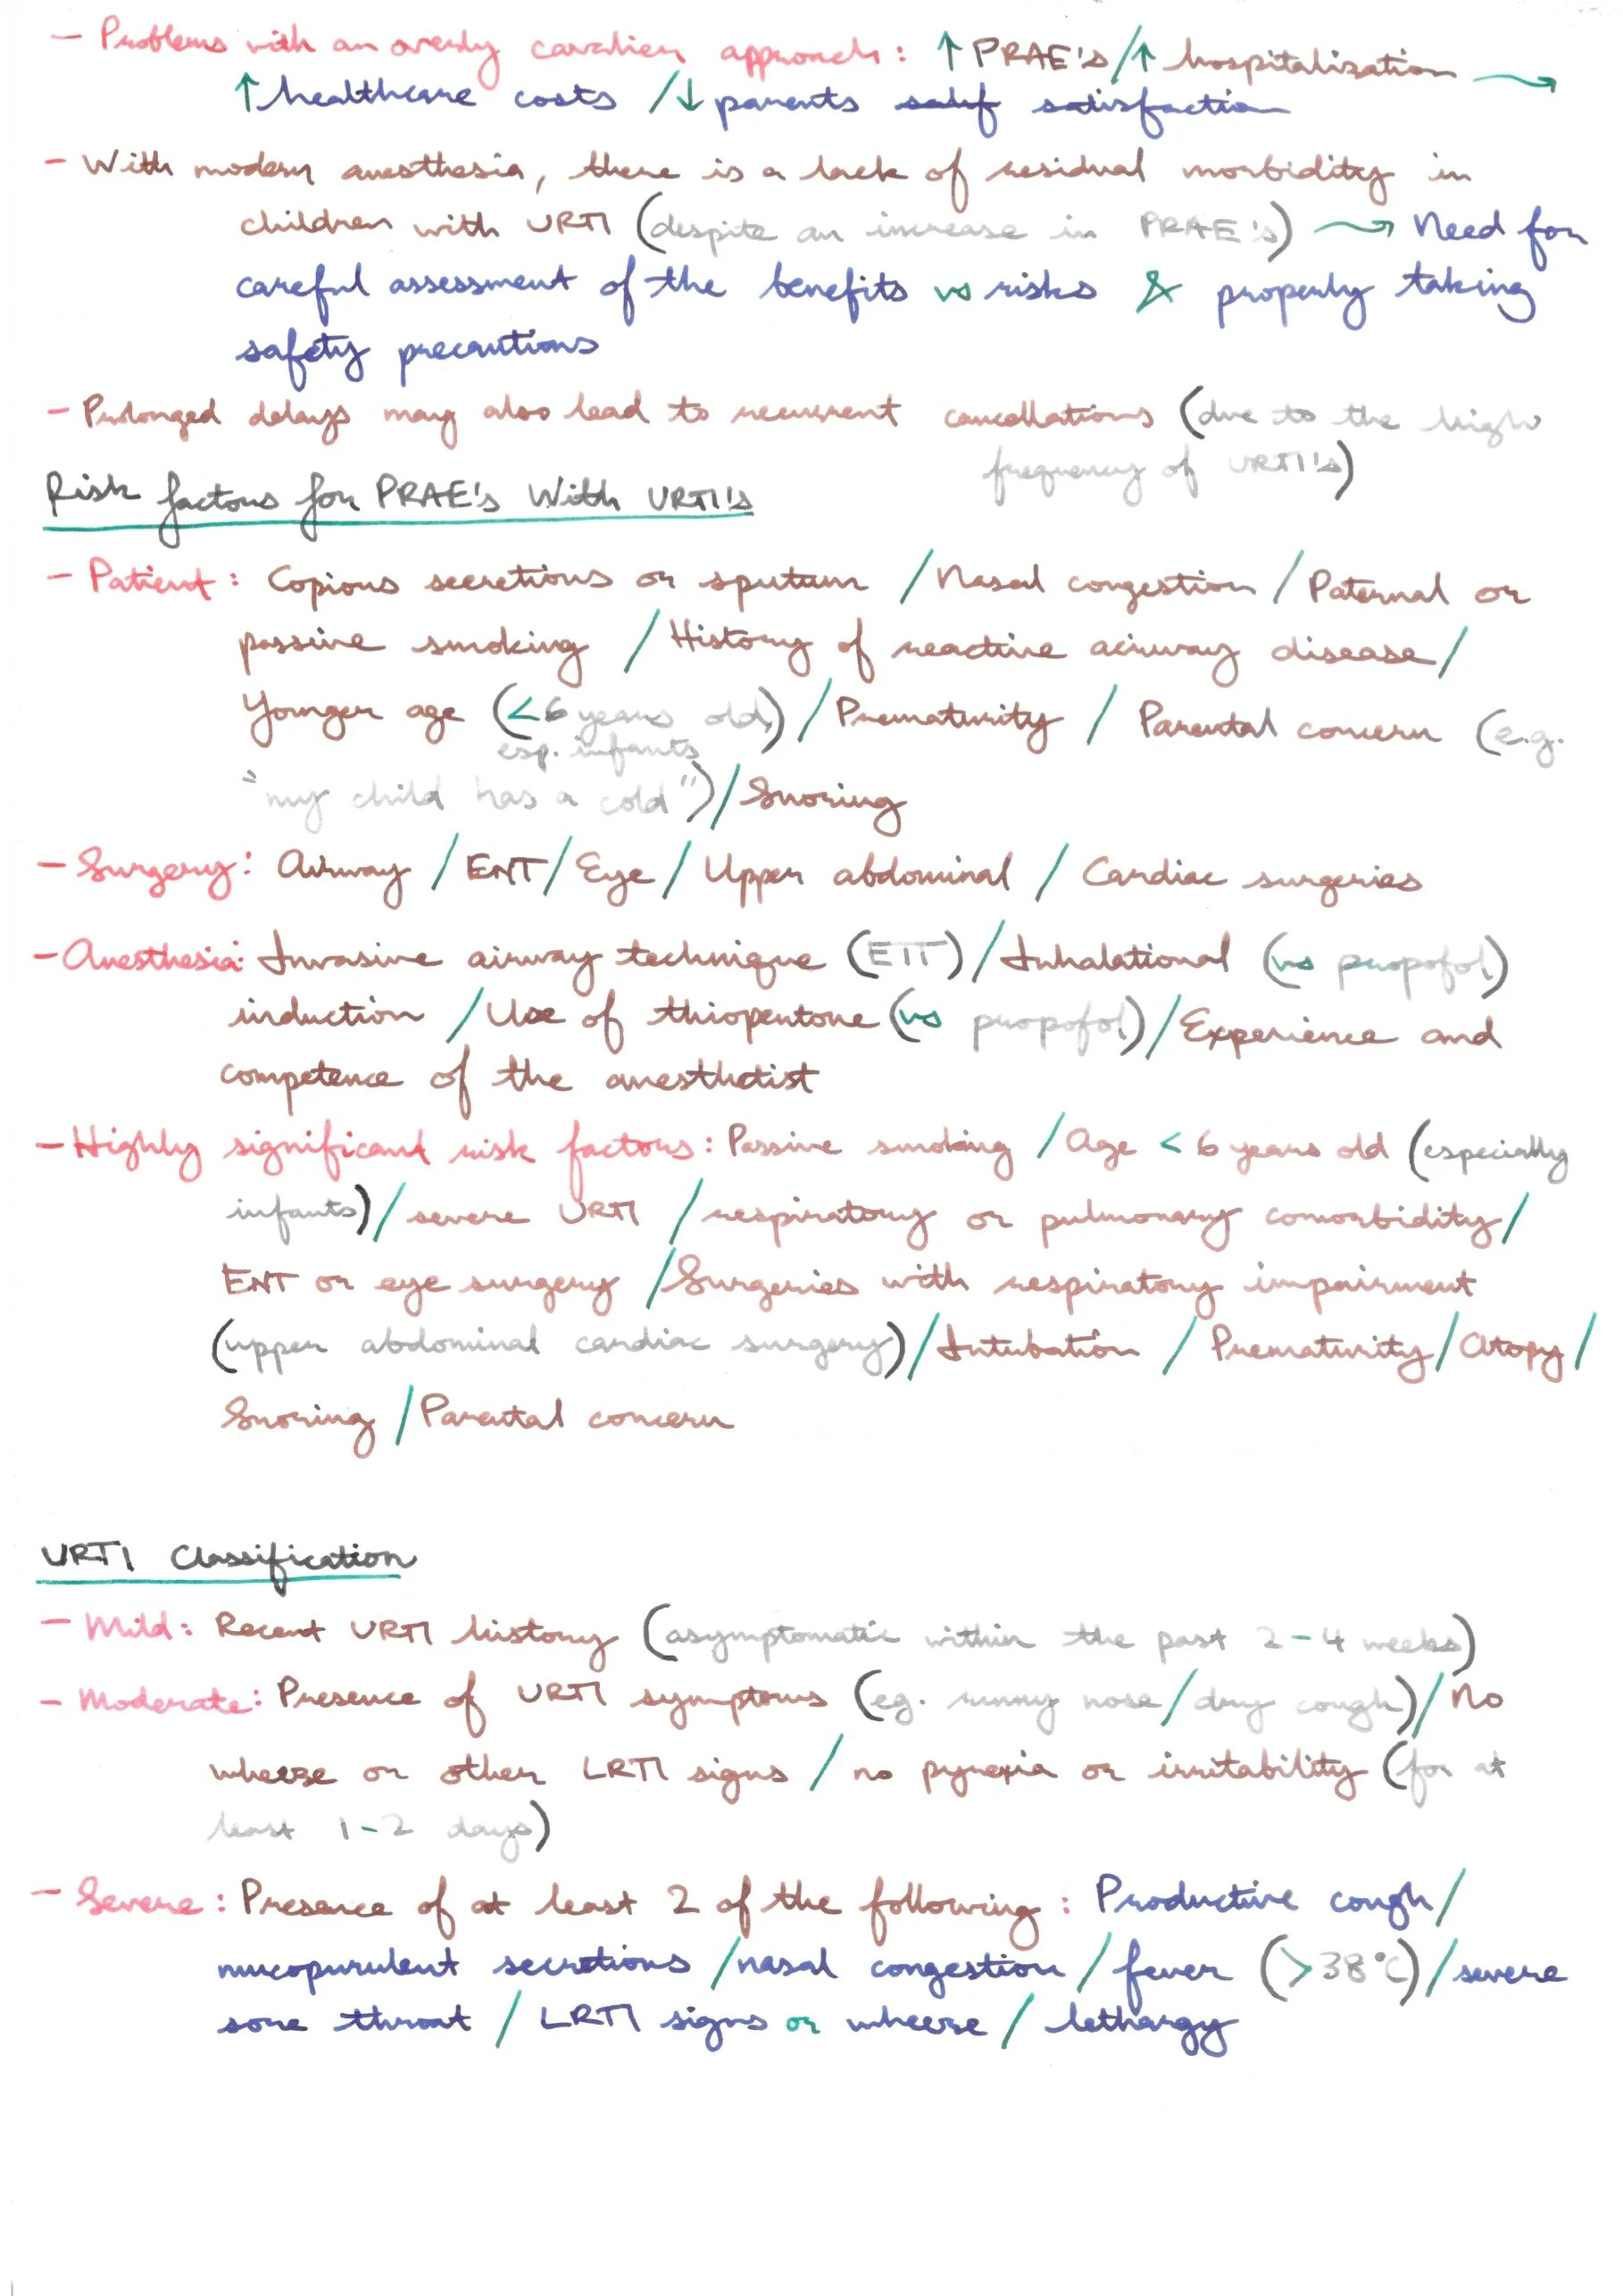 - Problems with an overly cavalier approach: ↑ PRAE's / ↑ hospitalization →
↑ healthcare costs / ↓ parents satisfaction
- With modern anesthesia, there is a lack of residual morbidity in
children with URTI (despite an increase in PRAE's) → Need for
careful assessment of the benefits vs risks & properly taking
safety precautions
- Prolonged delays may also lead to recurrent cancellations (due to the high
frequency of URTI's)
Risk factors for PRAE's With URTI's
- Patient: Copious secretions or sputum / Nasal congestion / Paternal or
passive smoking / History of reactive airway disease /
Younger age (<6 years old, / Prematurity / Parental concern (e.g.
esp. infants)
"my child has a cold") / Snoring
- Surgery: Airway / ENT / Eye / Upper abdominal / Cardiac surgeries
- Anesthesia: Invasive airway technique (ETT) / Inhalational (vs propofol)
induction / Use of thiopentone (vs propofol) / Experience and
competence of the anesthetist
- Highly significant risk factors: Passive smoking / Age < 6 years old (especially
infants) / severe URTI / respiratory or pulmonary comorbidity /
ENT or eye surgery / Surgeries with respiratory impairment
(upper abdominal cardiac surgery) / Intubation / Prematurity / Atopy /
Snoring / Parental concern
URTI Classification
- Mild: Recent URTI history (asymptomatic within the past 2-4 weeks)
- Moderate: Presence of URTI symptoms (eg. runny nose / dry cough) / No
wheeze or other LRTI signs / no pyrexia or irritability (for at
least 1-2 days)
- Severe: Presence of at least 2 of the following: Productive cough /
mucopurulent secretions / nasal congestion / fever (>38°C) / severe
sore throat / LRTI signs or wheeze / lethargy